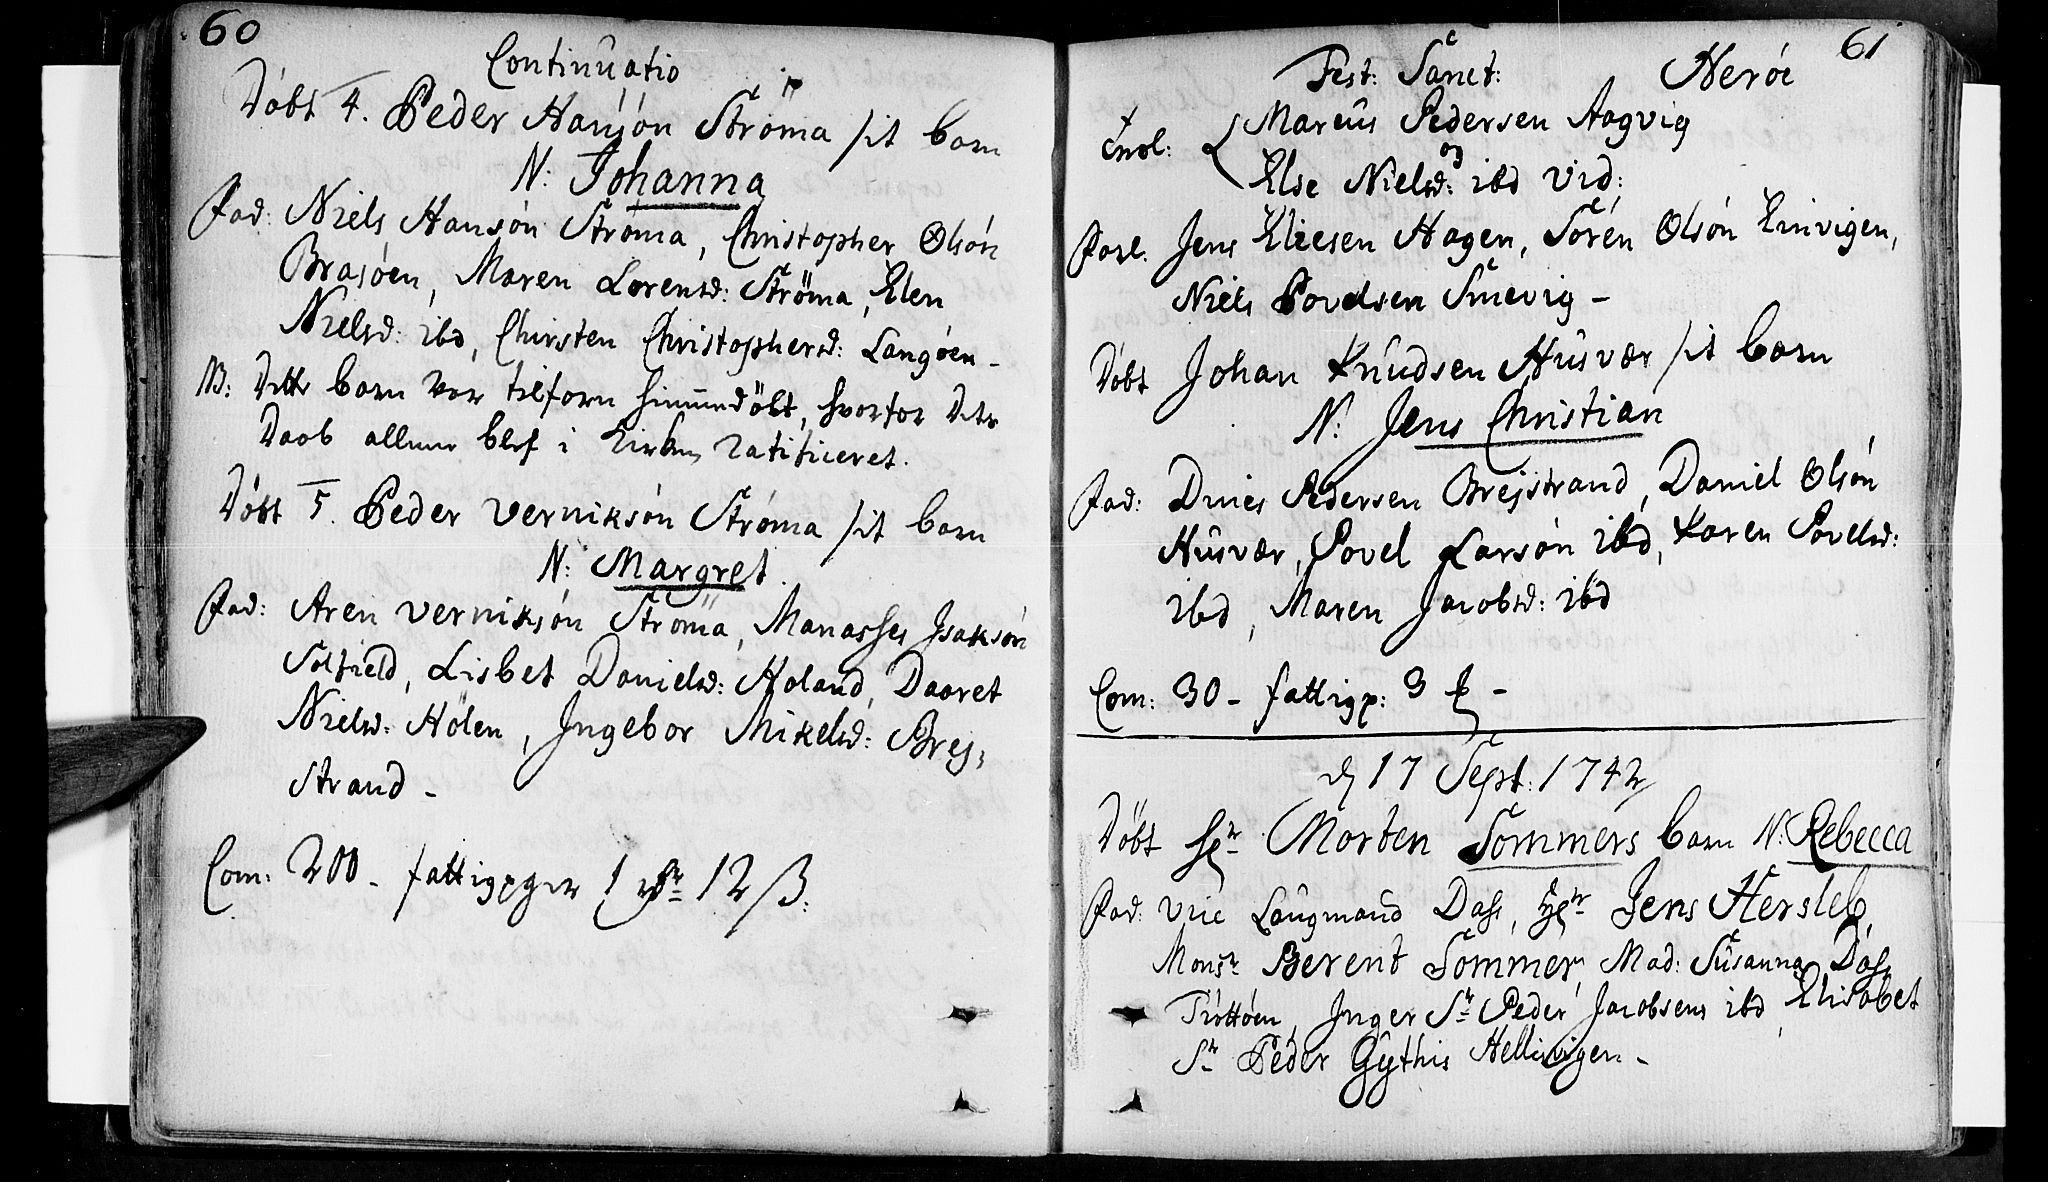 60
Continuatio
Døbt 4. Peder Hansøn Strøma sit barn
N: Johanna
Fad: Niels Hansøn Strøma, Christopher Olsøn
Brasøen, Maren Lorensd: Strøma, Elen
Nielsd: ibd, Chirsten Christophersd: Langøen –
NB: Dette barn var tilforn hiemmedøbt, hvorfor dets
Daab alleene blef i Kirken ratificeret.
Døbt 5. Peder Verniksøn Strøma sit barn
N: Margret.
Fad: Aren Verniksøn Strøma, Manasses Isaksøn
Solfield, Lisbet Danielsd: Holand, Daaret
Nielsd: Hølen, Ingebor Mikelsd: Brej-
strand –
Com: 200 – fattigpger 1 rdr 12 ß:
61
Fest: Sanct: Herøe
Trol: Marcus Pedersen Aagvig
og
Else Nielsd: ibd vid:
Forl. Jens Eliesen Hagen, Søren Olsøn Einvigen,
Niels Povelsen Smevig –
Døbt Johan Knudsen Husvær sit barn
N: Jens Christian
Fad: Dines Pedersen Brejstrand, Daniel Olsøn
Husvær, Povel Larsøn ibd, Karen Povelsd:
ibd, Maren Jacobsd: ibd
Com: 30 – fattigp: 3 ß –
d 17 Sept: 1742
Døbt Hr Morten Sommers barn N: Rebecca
Fad: Vice Laugmand Dass, Hr Jens Hersleb,
Monsr Berent Sommer, Mad: Susanna Dass
Tiøttøen, Inger Sr Peder Jacobsens ibd, Elisabet
Sr Peder Gythis Hellesvigen –